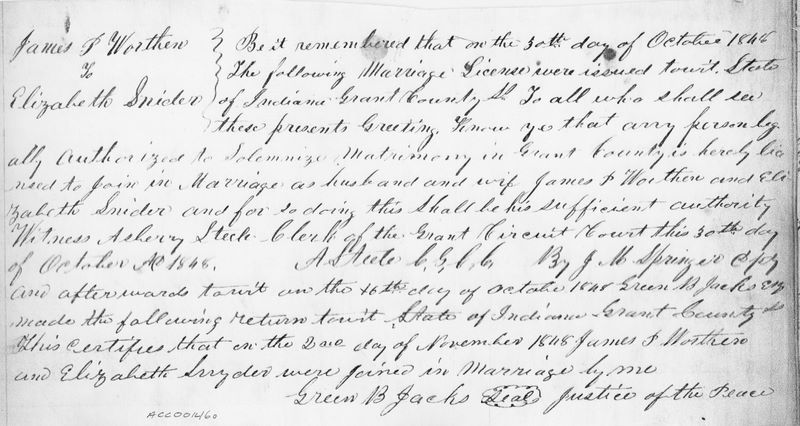 James P Worthen } Be it remembered that on the 30th day of October 1848
To The following Marriage License were issued towit. State
Elizabeth Snider of Indiana Grant County Ss To all who shall see
these presents Greeting, Know yes that anny person leg
ally Authorized to Solemnize Matrimony in Grant County is hereby lice
nsed to Join in Marriage as husband and wife James P Worthen and Eli
zabeth Snider and for so doing this Shall be his sufficient authority
Witness Asbery Steele Clerk of the Grant Circuit Court this 30th day
of October AD 1848. A Steele C, G, C, C By J M Springer Dpty
and afterwards towit on the 16th day of October 1848 Green B Jacks Esq
made the following return towit State of Indiana Grant County Ss
This Certifies that on the 2nd day of November 1848 James P Worthen
and Elizabeth Snyder were Joined in Marriage by me
Green B Jacks Seal Justice of the Peace
ACC001460